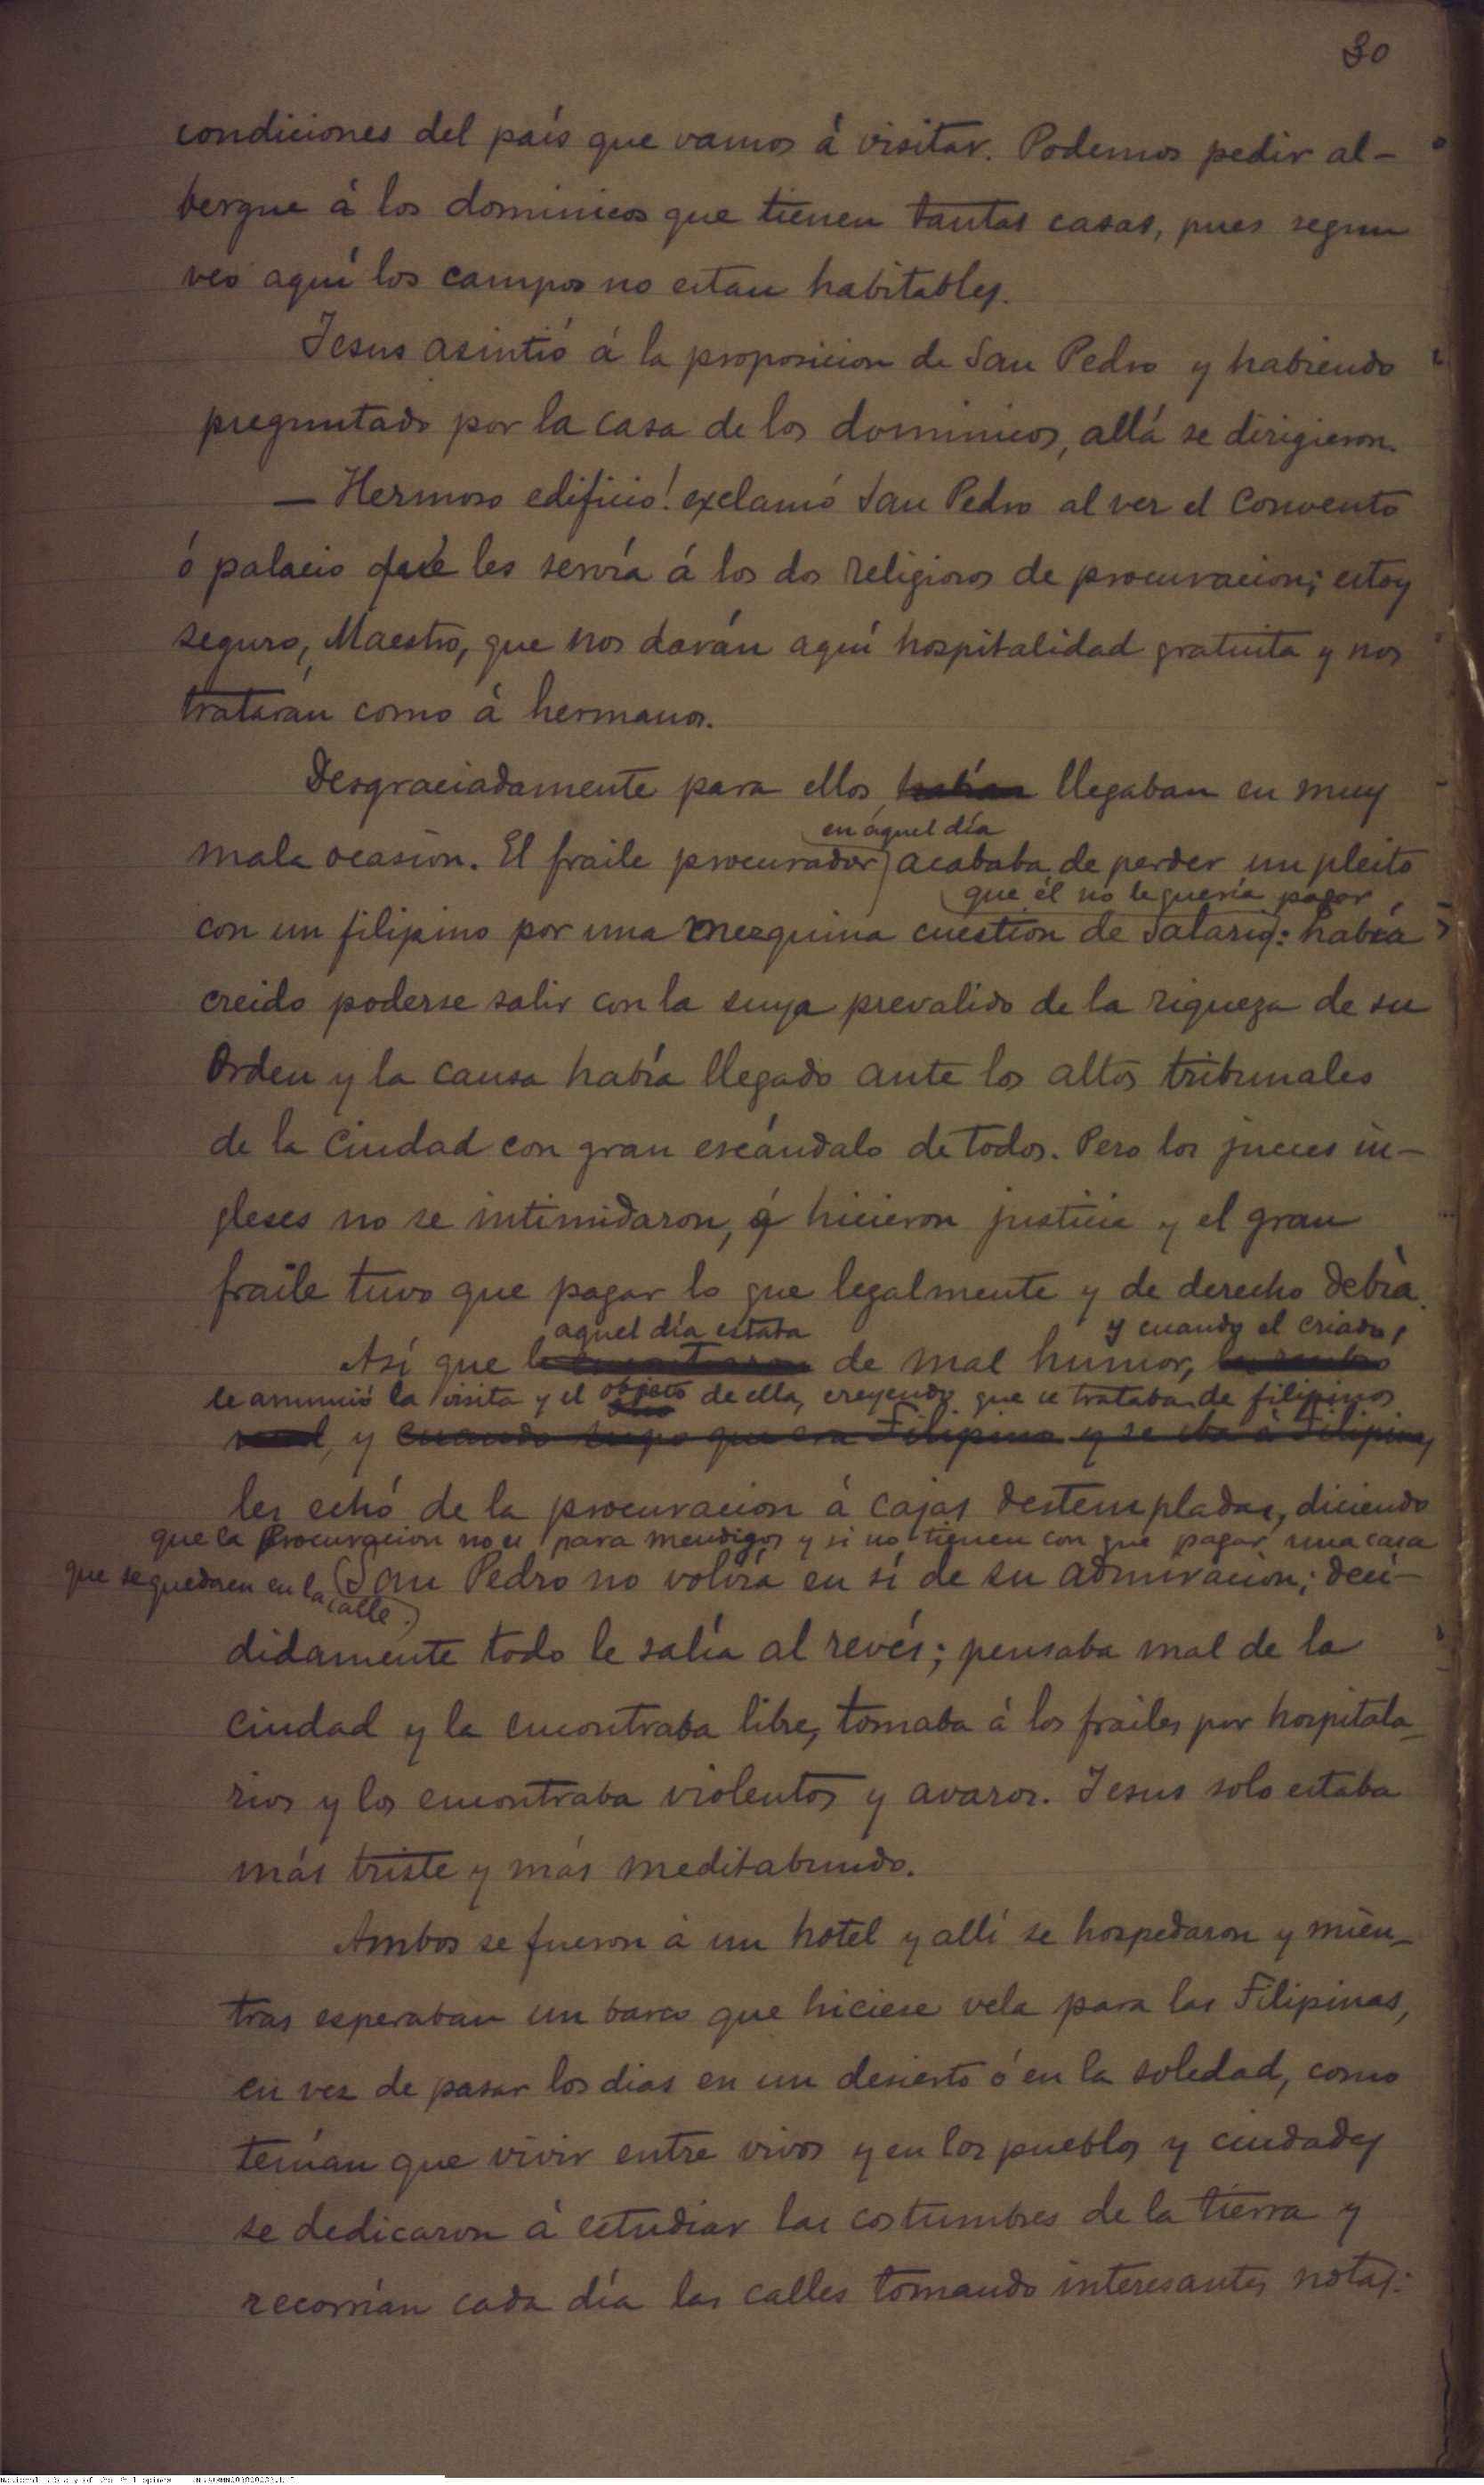 30
condiciones del país que vamos á visitar. Podemos pedir al-
bergue á los dominicos que tienen tantas casas, pues segun
veo aquí los campos no estan habitables.
Jesus asintió á la proposicion de San Pedro y habiendo
preguntado por la casa de los dominicos, allá se dirigieron.
— Hermoso edificio! exclamó San Pedro al ver el Convento
ó palacio que les servía á los dos religiosos de procuracion; estoy
seguro, Maestro, que nos darán aquí hospitalidad gratuita y nos
tratarán como á hermanos.
Desgraciadamente para ellos habían llegaban en muy
en aquel día
mala ocasion. El fraile procurador acababa de perder un pleito
que él no le quería pagar
con un filipino por una mezquina cuestion de salario: había
creido poderse salir con la suya prevalido de la riqueza de su
Orden y la causa había llegado ante los altos tribunales
de la Ciudad con gran escándalo de todos. Pero los jueces in-
gleses no se intimidaron, é hicieron justicia y el gran
fraile tuvo que pagar lo que legalmente y de derecho debía.
aquel día estaba y cuando el criado
Así que le encontraron de mal humor,
le anunció la visita y el objeto de ella, creyendo que se trataba de filipinos
y cuando supo que era Filipino y se iba á Filipinas,
les echó de la procuracion á cajas destempladas, diciendo
que la Procuracion no es para mendigos y si no tienen con que pagar una casa
que se queden en la calle.) San Pedro no volvía en sí de su admiracion; deci-
didamente todo le salía al revés; pensaba mal de la
Ciudad y la encontraba libre, tomaba á los frailes por hospitala-
rios y los encontraba violentos y avaros. Jesus solo estaba
más triste y más meditabundo.
Ambos se fueron á un hotel y allí se hospedaron y mien-
tras esperaban un barco que hiciese vela para las Filipinas,
en vez de pasar los dias en un desierto ó en la soledad, como
tenían que vivir entre vivos y en los pueblos y ciudades
se dedicaron á estudiar las costumbres de la tierra y
recorrían cada día las calles tomando interesantes notas: